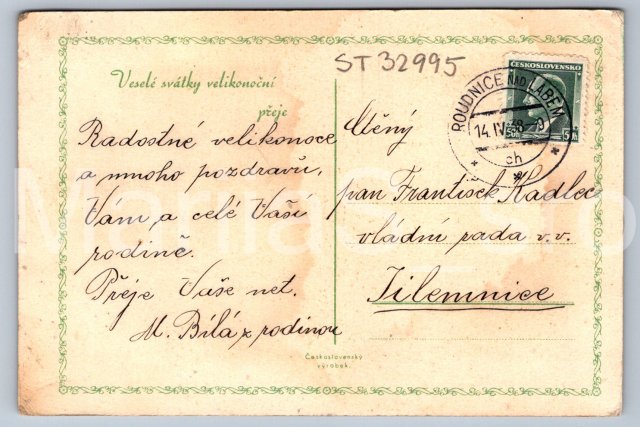 ST 32995
ČESKOSLOVENSKO
ROUDNICE NAD LABEM
14.IV.38-9
ch
50h
Veselé svátky velikonoční
přeje
Radostné velikonoce
a mnoho pozdravů,
Vám a celé Vaší
rodině.
Přeje Vaše net.
M. Bílá z rodinou
Československý
výrobek.
Ctěný
pan František Kadlec
vládní rada v. v.
Jilemnice